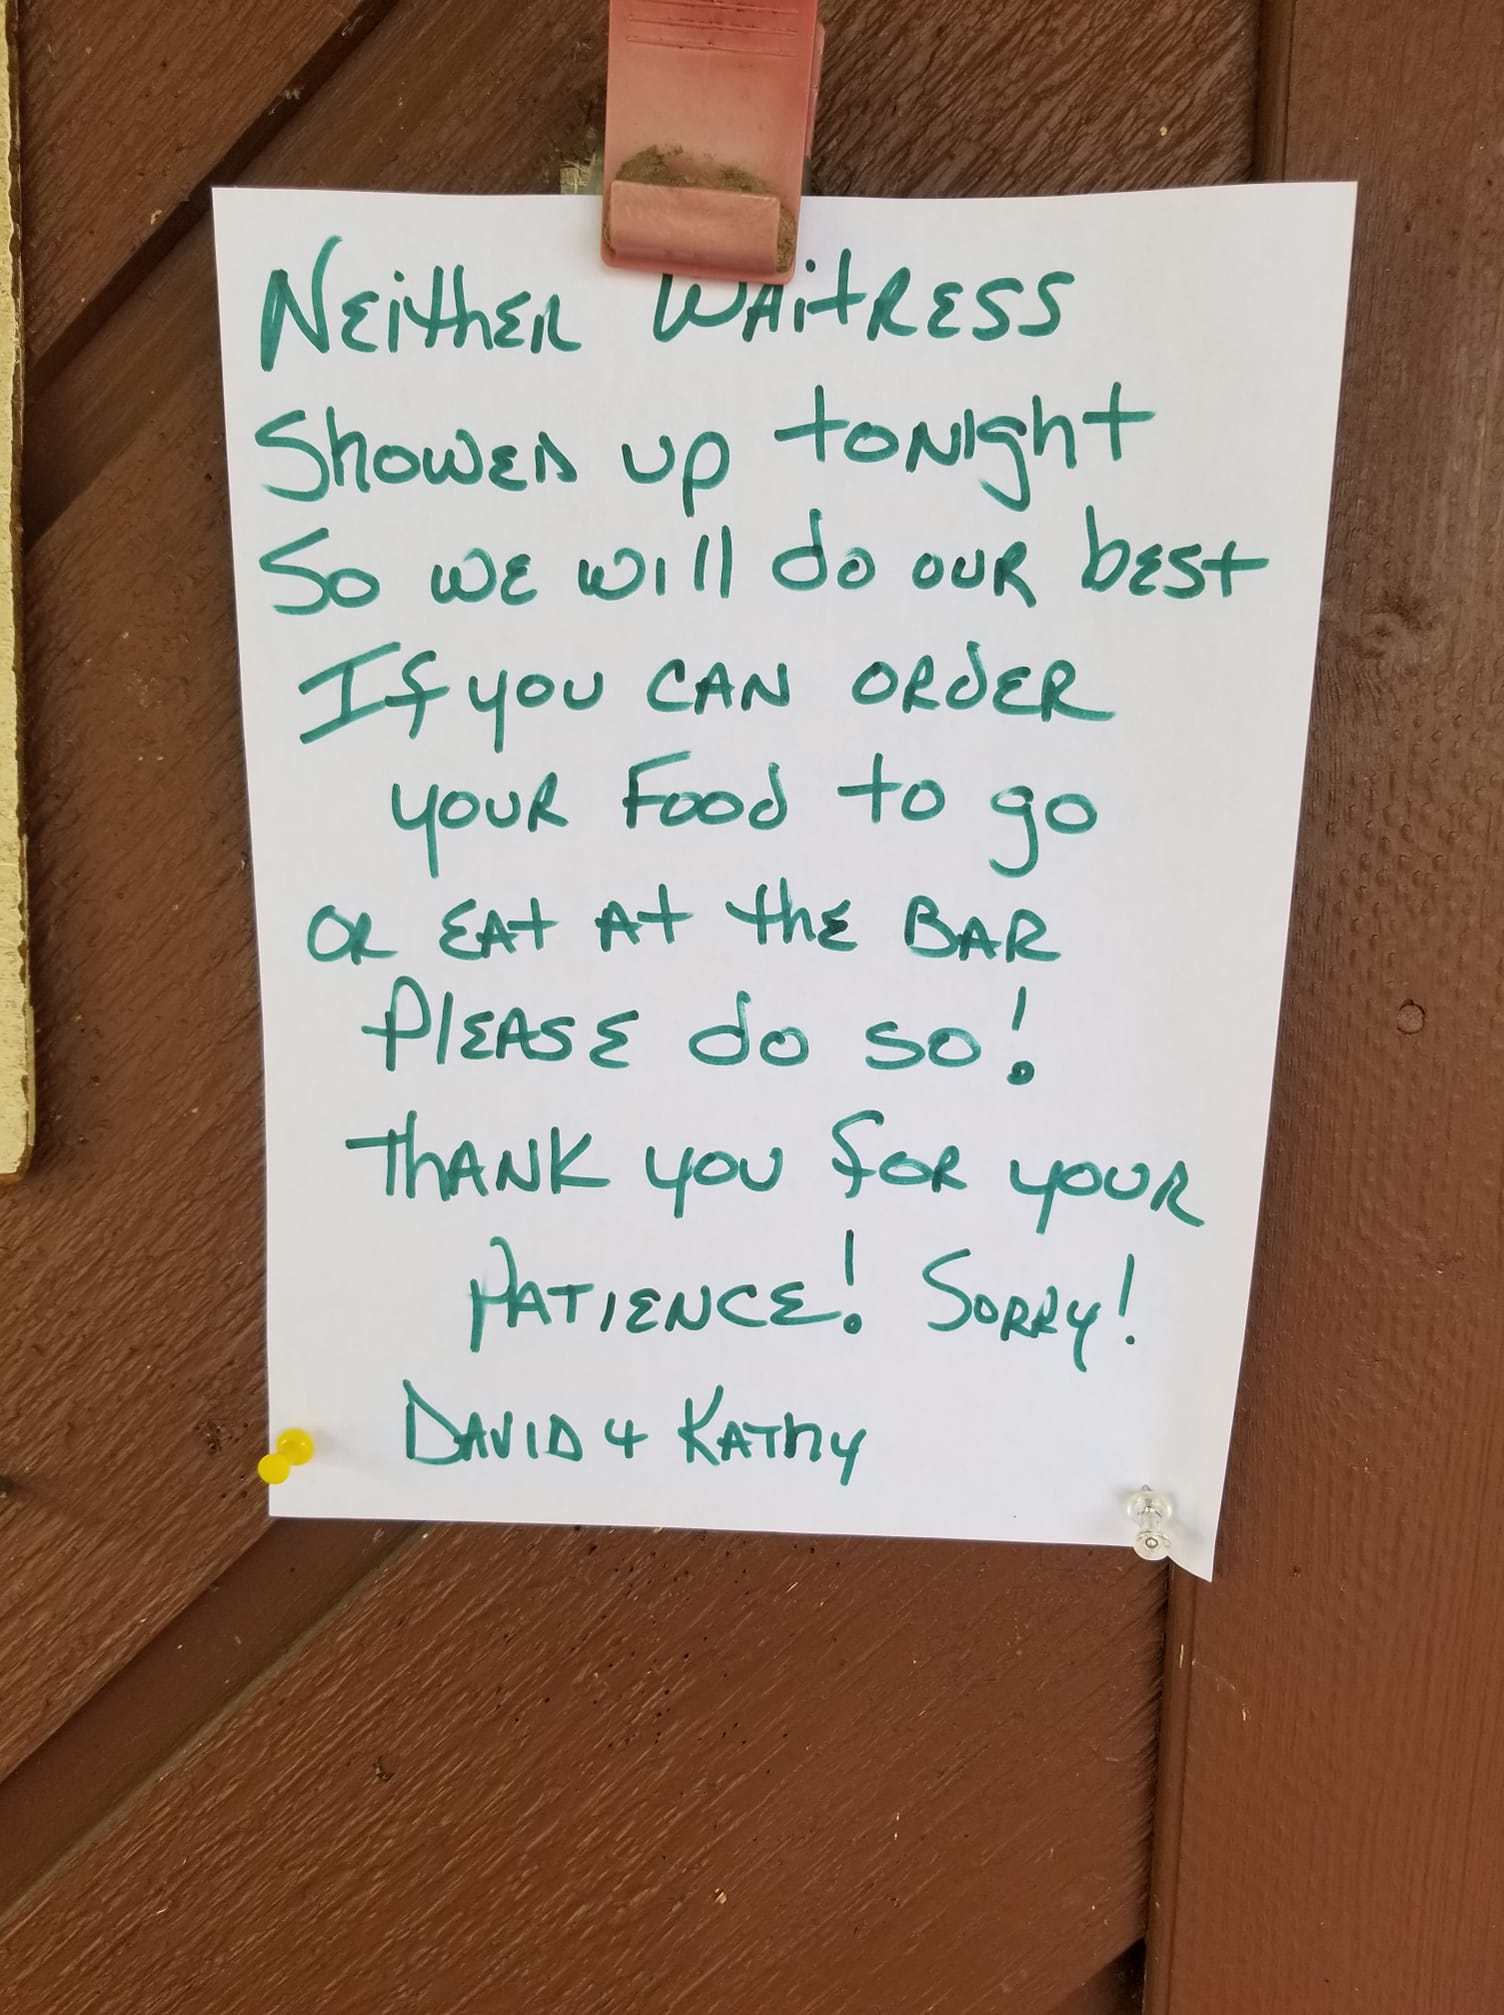 Neither Waitress
Showed up tonight
So we will do our best
If you can order
your Food to go
or eat at the Bar
Please do so!
Thank you for your
Patience! Sorry!
David & Kathy